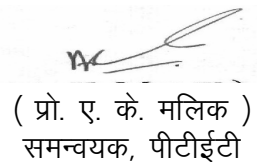 ( प्रो. ए. के. मलिक )
समन्वयक, पीटीईटी